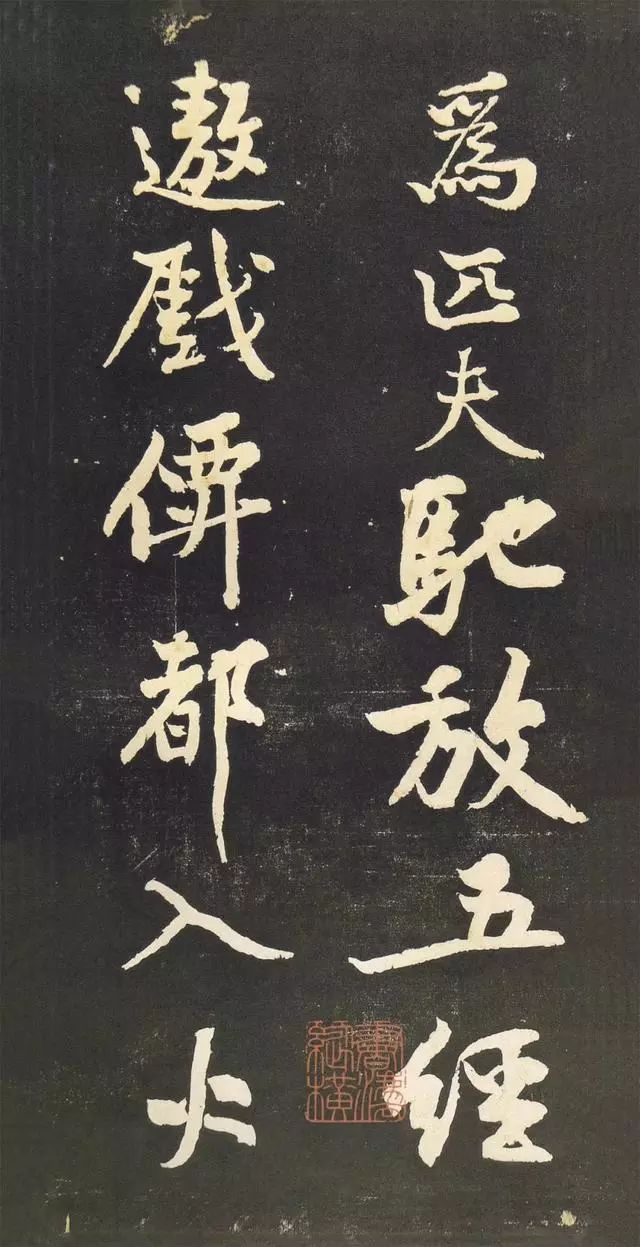 爲匹夫馳放五經
遨戲僊都入火